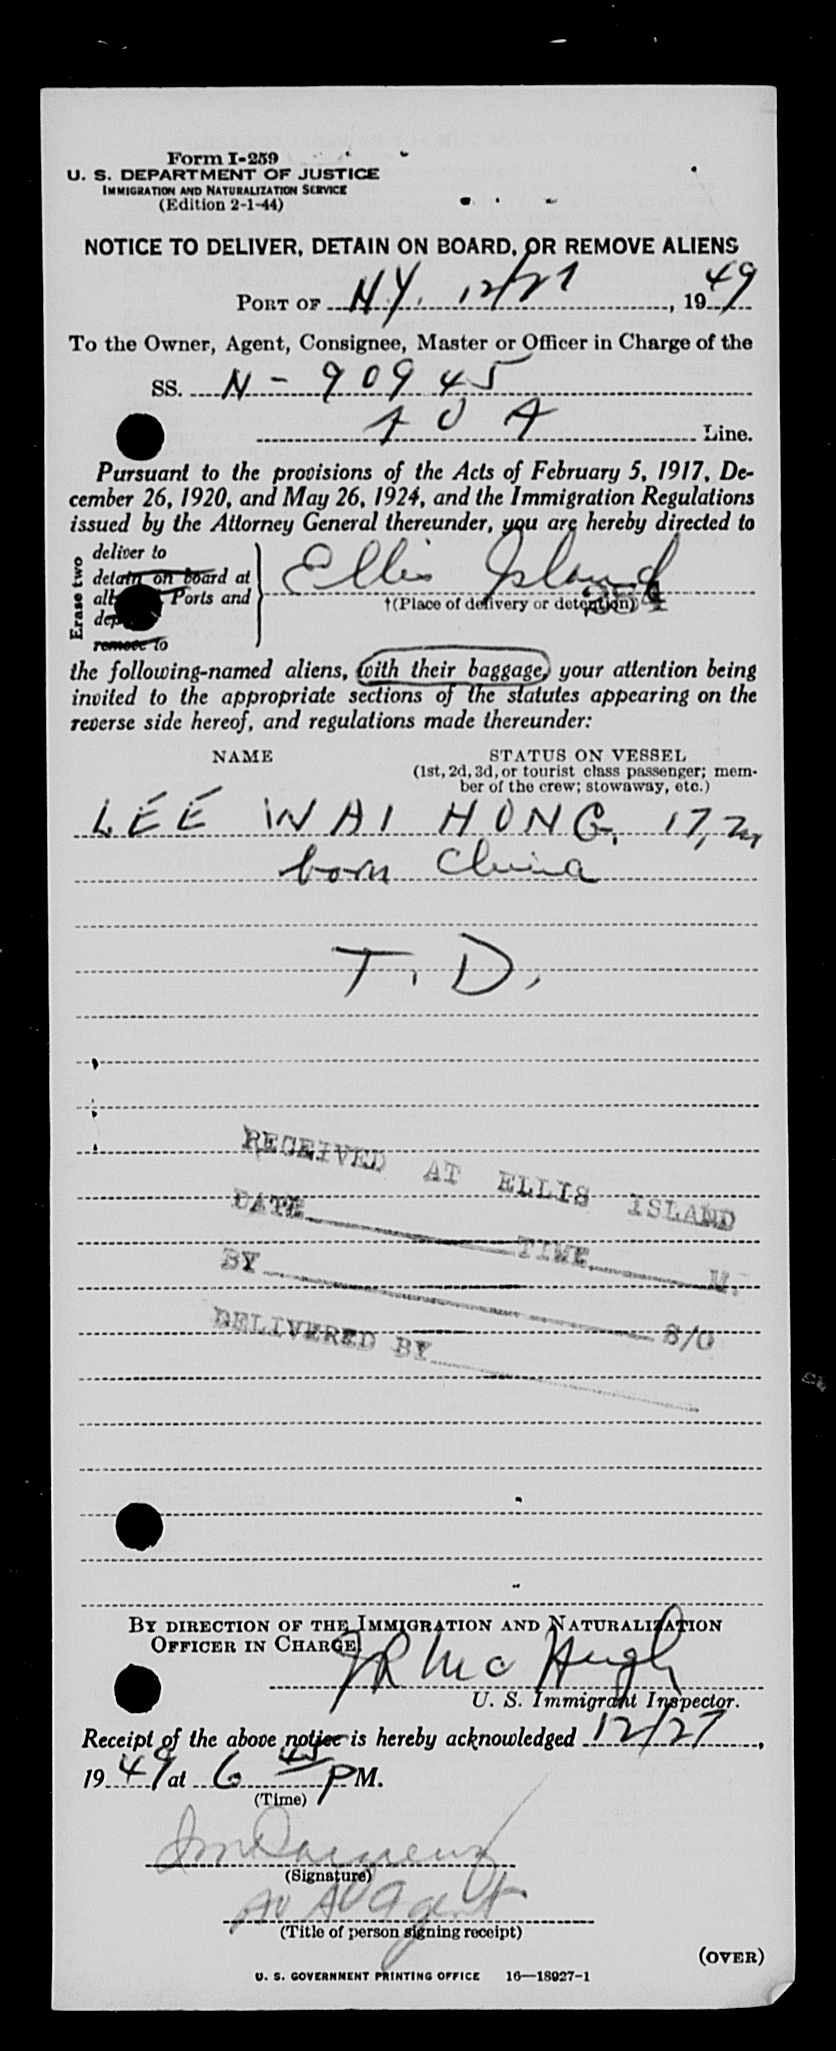 Form I-259
U. S. DEPARTMENT OF JUSTICE
IMMIGRATION AND NATURALIZATION SERVICE
(Edition 2-1-44)
NOTICE TO DELIVER, DETAIN ON BOARD, OR REMOVE ALIENS
PORT OF N.Y. 12/27, 1949
To the Owner, Agent, Consignee, Master or Officer in Charge of the
SS. N-90945
A O A Line.
Pursuant to the provisions of the Acts of February 5, 1917, De-
cember 26, 1920, and May 26, 1924, and the Immigration Regulations
issued by the Attorney General thereunder, you are hereby directed to
Erase two
deliver to
detain on board at
all Ports and
remove to
Ellis Island
†(Place of delivery or detention)
the following-named aliens, with their baggage, your attention being
invited to the appropriate sections of the statutes appearing on the
reverse side hereof, and regulations made thereunder:
NAME STATUS ON VESSEL
(1st, 2d, 3d, or tourist class passenger; mem-
ber of the crew; stowaway, etc.)
LEE WAI HONG, 17,
born China
T. D.
RECEIVED AT ELLIS ISLAND
DATE TIME M.
BY S/O
DELIVERED BY
BY DIRECTION OF THE IMMIGRATION AND NATURALIZATION
OFFICER IN CHARGE
JR McHugh
U. S. Immigrant Inspector.
Receipt of the above notice is hereby acknowledged 12/27,
1949 at 6 45 PM.
(Time)
(Signature)
Agent
(Title of person signing receipt)
(OVER)
U. S. GOVERNMENT PRINTING OFFICE 16—18927-1